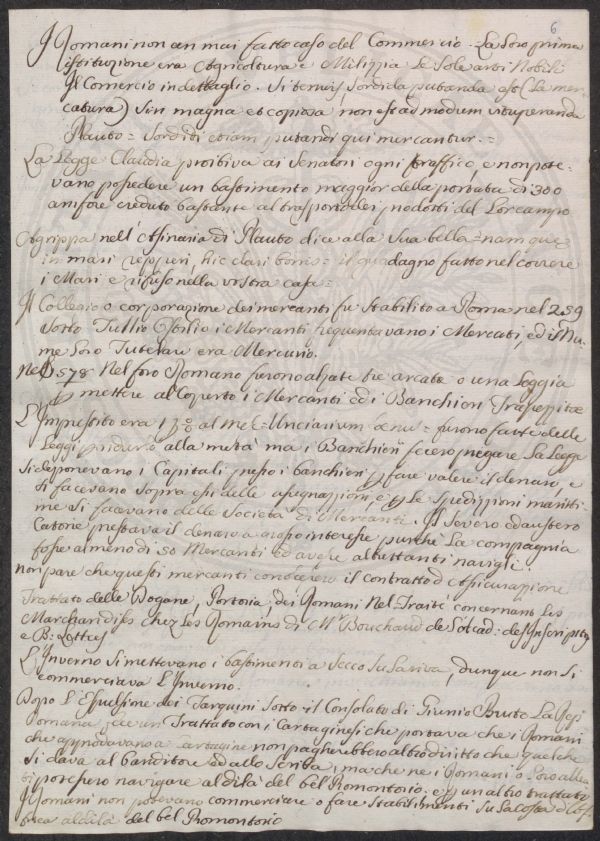 6
I Romani non an mai fatto caso del Commercio. La Loro prima
istituzione era Agricoltura e Milizzia Le Sole arti Nobili
Il Comercio in dettaglio. Si Sordida putanda est (La mer-
catura) Sin magna et copiosa non est admodum vituperanda
Plauto = Sordidi etiam putandi qui mercantur. =
La Legge Claudia proibiva ai Senatori ogni traffico, e non pote-
vano possedere un bastimento maggior della portata di 300
anfore creduto bastante al trasporto dei prodotti del Lor campo
Agrippa nell'Asinaria di Plauto dice alla Sua bella = nam que
in mari repperi, hic elavi bonis = il guadagno fatto nel correre
i Mari e rifuso nella vostra casa =
Il Collegio o corporazione dei mercanti fu Stabilito a Roma nel 259
Sotto Tullio Ostilio i Mercanti frequentavano i Mercati, ed il Nu-
me Loro Tutelare era Mercurio.
Nel 578 Nel foro Romano furono alzate tre arcate o una Loggia
p mettere al Coperto i Mercanti ed i Banchieri Trapezzitæ
L'Imprestito era al Mese = Unciarium fenus = furono fatte delle
Leggi p ridurlo alla metà ma i Banchieri fecero negare La Legge
Si deponevano i Capitali presso i banchieri p fare valere il denaro, e
Si facevano Sopra essi delle assegnazioni, e p Le Spedizzioni maritti-
me Si facevano delle Società di Mercanti. Il Severo ed austero
Catone prestava il denaro a grosso interesse purche La compagnia
fosse almeno di 50 Mercanti ed avesse altrettanti navigli.
non pare che questi mercanti conoscessero il contratto d'Assicurazione
Trattato delle Dogane, Portoria dei Romani Nel Traité concernant les
Marchandises chez Les Romains di Mr Bouchaud de L'Acad: des Inscriptions
e B: Lettres
L'Inverno Si mettevano i bastimenti a Secco Su La riva, dunque non Si
commerciava L'Inverno.
Dopo L'Espulsione dei Tarquini Sotto il Consolato di Giunio Bruto La Rep:
Romana fece un Trattato con i Cartaginesi che portava che i Romani
che approdavano a Cartagine non pagherebbero altro diritto che quel che
Si dava al banditore ed allo Scriba, ma che ne i Romani o Loro alleati
potessero navigare al di là del bel Promontorio. e p un altro trattato
I Romani non potevano commerciare o fare Stabilimenti Su La Costa d'Af-
frica al di là del bel Promontorio